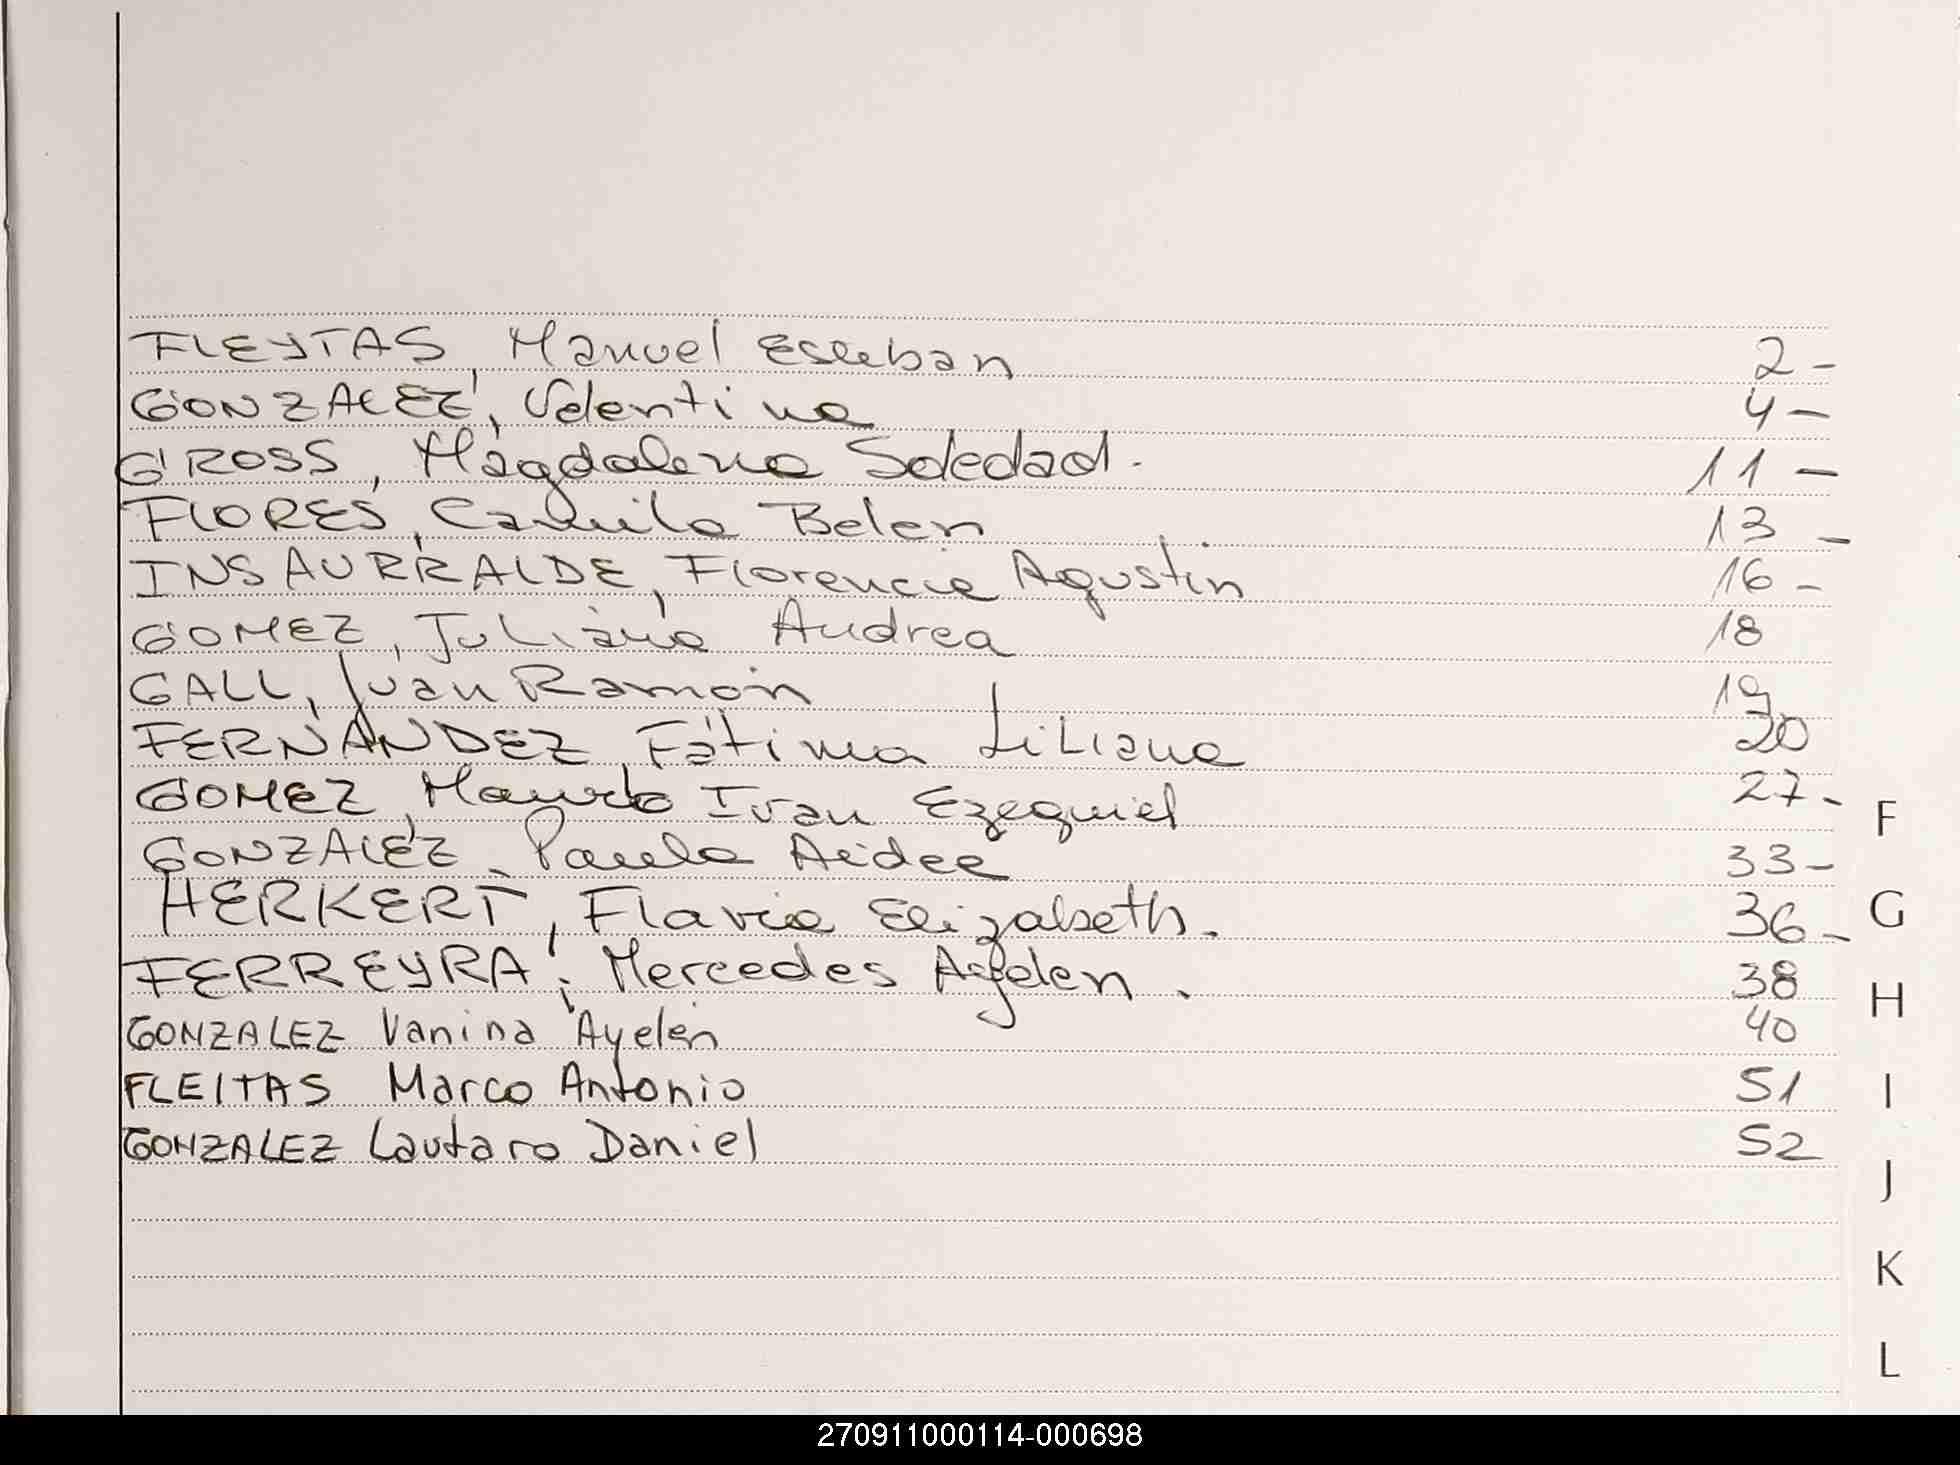 FLEYTAS, Manuel Esteban 2-
GONZALEZ, Valentina 4-
GROSS, Magdalena Soledad. 11-
FLORES, Camila Belen 13-
INSAURRALDE, Florencia Agustin 16-
GOMEZ, Juliana Andrea 18
GALL, Juan Ramón 19
FERNANDEZ, Fátima Liliana 20
GOMEZ, Ivan Ezequiel 27-
GONZALEZ, Paula Aidee 33-
HERKERT, Flavia Elizabeth. 36-
FERREYRA, Mercedes Ayelen. 38
GONZALEZ Vanina Ayelén 40
FLEITAS Marco Antonio 51
GONZALEZ Lautaro Daniel 52
F
G
H
I
J
K
L
270911000114-000698